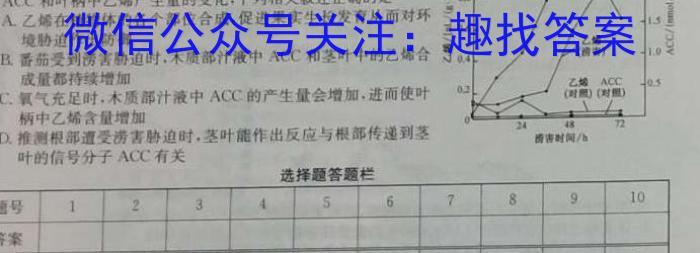 ACC 和叶柄中乙烯产生量的变化,下列相关叙述正确的是
A. 乙烯
微信公众号关注：趣找答案
B. 番茄受到涝害胁迫时,木质部汁液中 ACC 和茎叶中的乙烯合
成量都持续增加
C. 氧气充足时,木质部汁液中 ACC 的产生量会增加,进而使叶
柄中乙烯含量增加
D. 推测根部遭受涝害胁迫时,茎叶能作出反应与根部传递到茎
叶的信号分子 ACC 有关
1.5
1.0
0.5
0.4
0.2
0
乙烯 ACC
(对照) (对照)
24 48 72
涝害时间/h
选择题答题栏
题号 1 2 3 4 5 6 7 8 9 10
答案